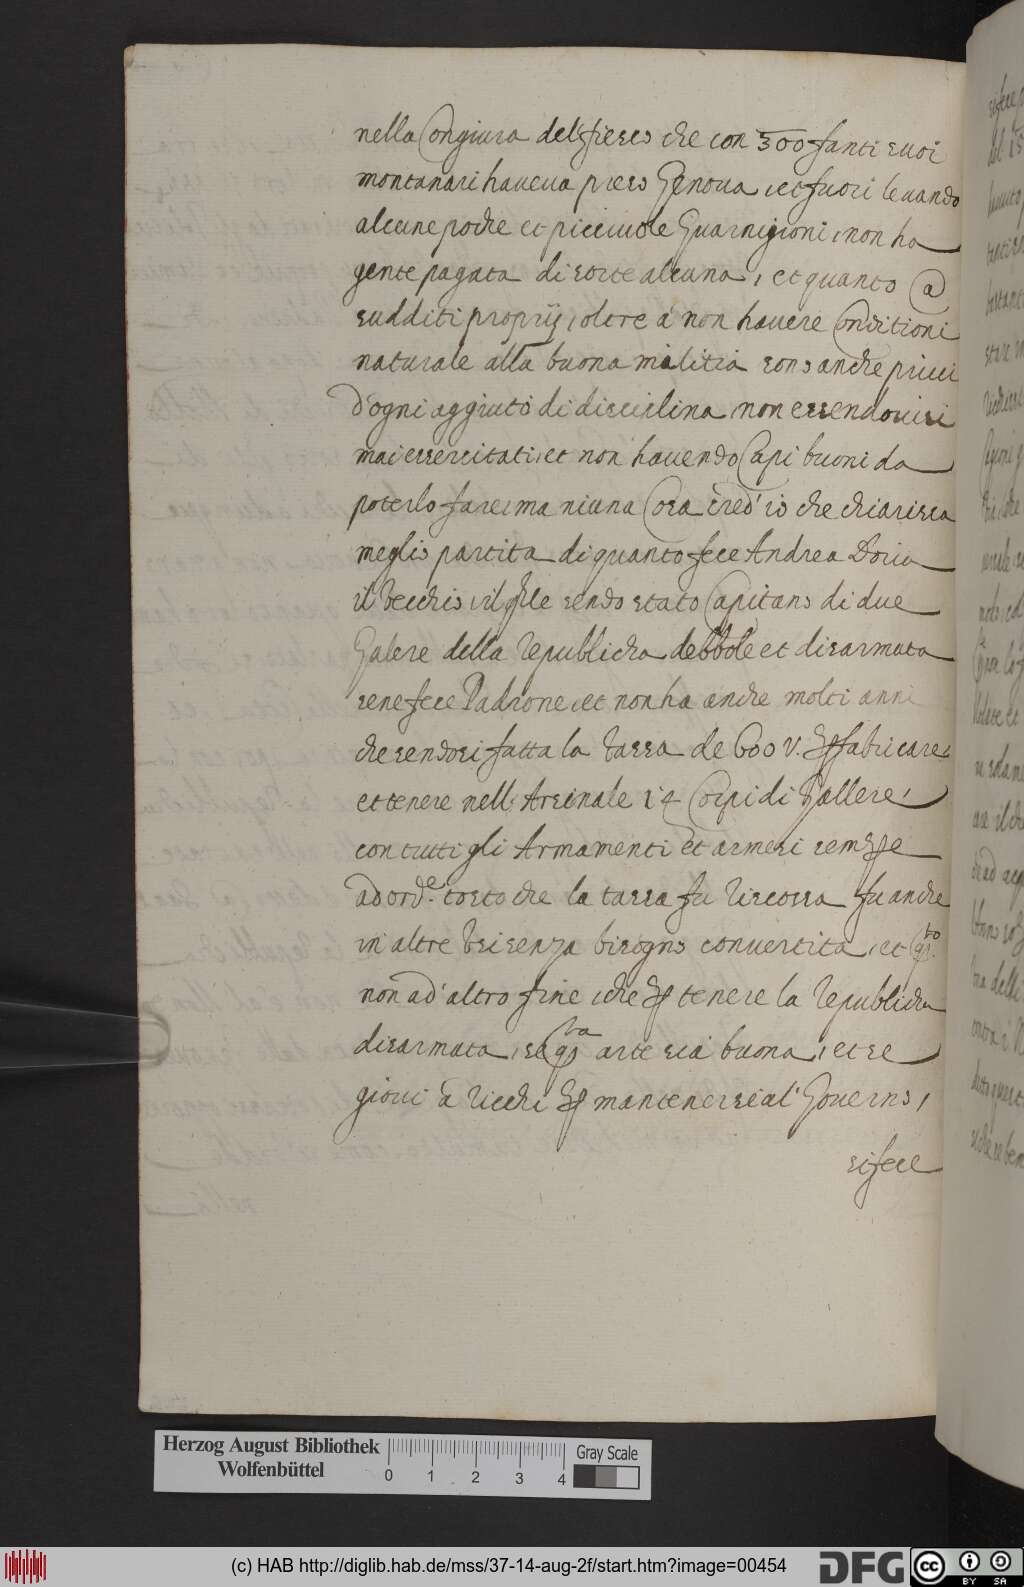 nella Congiura del fiesco che con 300 fanti suoi
montanari haveva preso Genova, et fuori levando
alcune poche et picciole Guarnigioni, non ha
gente pagata di sorte alcuna, et quanto a
sudditi proprij, oltre a non havere Conditioni
naturale alla buona militia sono anche privi
d'ogni aggiuto di disciplina non essendovisi
mai essercitati, et non havendo Capi buoni da
poterlo fare, ma niuna Cosa cred' io che chiarisca
meglio partita di quanto fece Andrea Doria
il Vecchio, il qle sendo stato Capitano di due
Galere della Republicha debbole et disarmata
se ne fece Padrone, et non ha anche molti anni
che sendosi fatta la tassa de 600 V. per fabricare,
et tenere nell Arsenale 14 Corpi di Gallere,
con tutti gli Armamenti et arnesi sempre
ad ord.e tosto che la tassa fu riscossa fu anche
in altre bisogno convertita, et q.to
non ad' altro fine, che per tenere la republicha
disarmata, se qsta arte sia buona, et se
giovi a ricchi per mantenersi al' Governo,
si fece
Herzog August Bibliothek
Wolfenbüttel
0 1 2 3 4
Gray Scale
(c) HAB http://diglib.hab.de/mss/37-14-aug-2f/start.htm?image=00454
DFG
cc BY SA